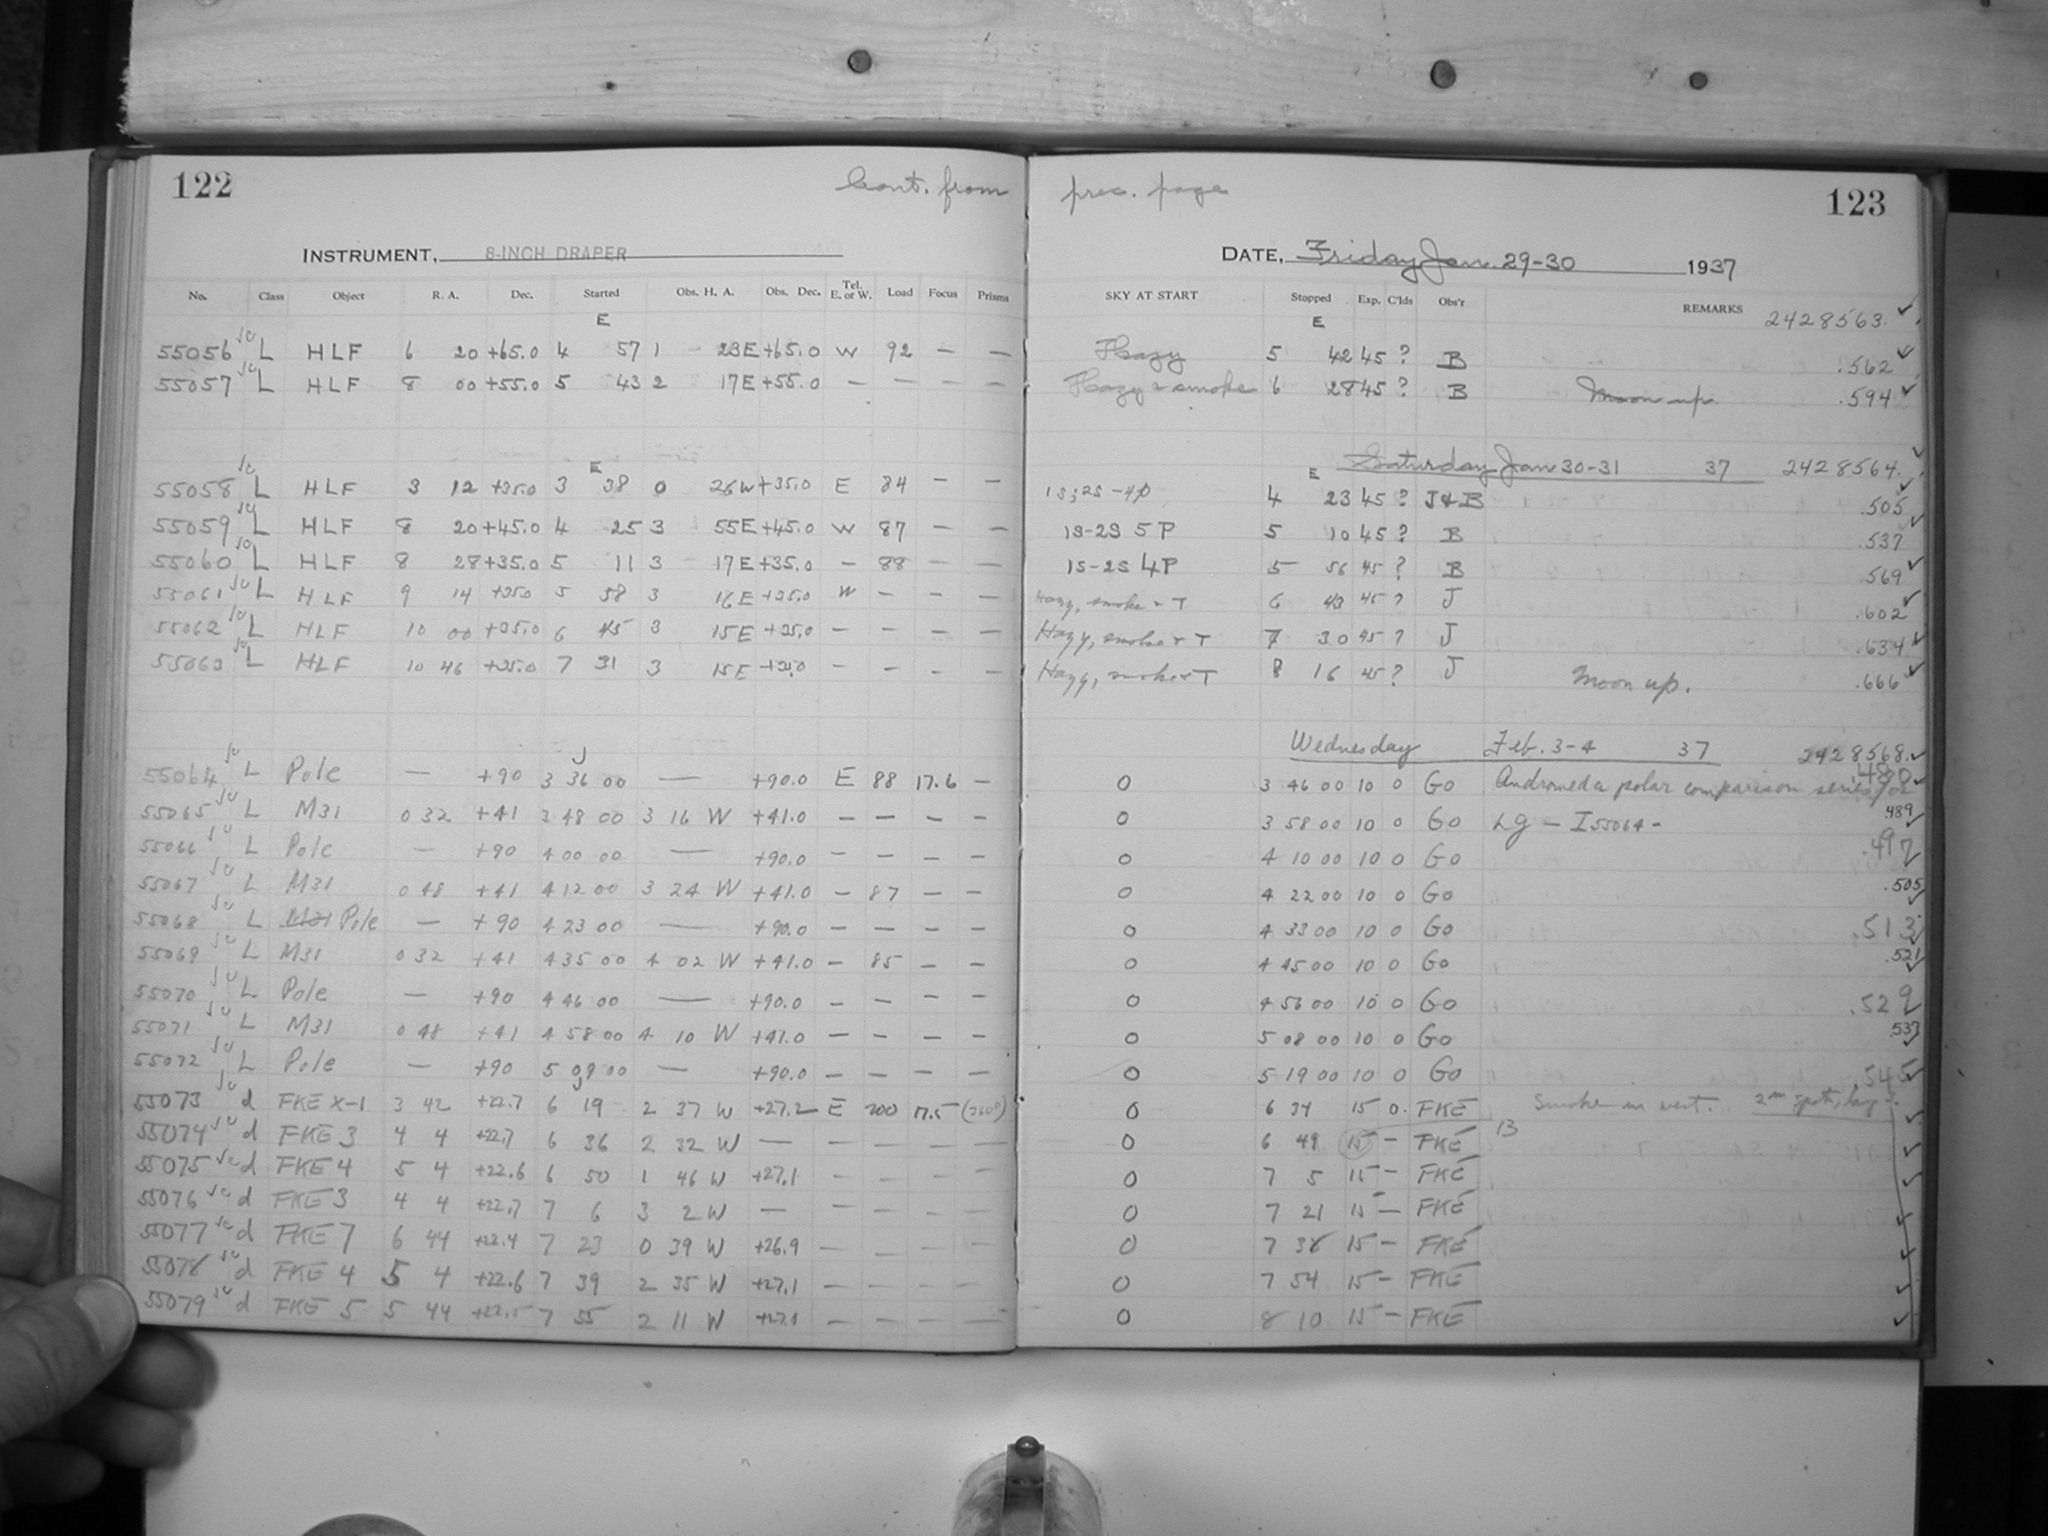 122 Cont. from prec. page 123
INSTRUMENT, 8-INCH DRAPER DATE, Friday Jan. 29-30 1937
No. Class Object R. A. Dec. Started Obs. H. A. Obs. Dec. Tel. E. or W. Load Focus Prisms SKY AT START Stopped Exp. C'lds Obs'r REMARKS 2428563.
E E
55056 L HLF 6 20 +65.0 4 57 1 23E +65.0 W 92 — — Hazy 5 42 45 ? B .562
55057 L HLF 8 00 +55.0 5 43 2 17E +55.0 — — — — Hazy & smoke 6 28 45 ? B Moon up. .594
Saturday Jan 30-31 37 2428564.
E E
55058 L HLF 3 12 +35.0 3 38 0 26W +35.0 E 84 — — 1S;2S-4P 4 23 45 ? J&B .505
55059 L HLF 8 20 +45.0 4 25 3 55E +45.0 W 87 — — 1S-2S 5P 5 10 45 ? B .537
55060 L HLF 8 28 +35.0 5 11 3 17E +35.0 — 88 — — 1S-2S 4P 5 56 45 ? B .569
55061 L HLF 9 14 +35.0 5 58 3 16E +35.0 W — — — Hazy, smoke & T 6 43 45 ? J .602
55062 L HLF 10 00 +35.0 6 45 3 15E +35.0 — — — — Hazy, smoke & T 7 30 45 ? J .634
55063 L HLF 10 46 +35.0 7 31 3 15E +35.0 — — — — Hazy, smoke & T 8 16 45 ? J Moon up. .666
Wednesday Feb. 3-4 37 2428568.
J
55064 L Pole — +90 3 36 00 — +90.0 E 88 17.6 — 0 3 46 00 10 0 Go Andromeda polar comparison series for .480
55065 L M31 0 32 +41 3 48 00 3 16 W +41.0 — — — — 0 3 58 00 10 0 Go Lg — I 55064 - .489
55066 L Pole — +90 4 00 00 — +90.0 — — — — 0 4 10 00 10 0 Go .497
55067 L M31 0 48 +41 4 12 00 3 24 W +41.0 — 87 — — 0 4 22 00 10 0 Go .505
55068 L M31 Pole — +90 4 23 00 — +90.0 — — — — 0 4 33 00 10 0 Go .513
55069 L M31 0 32 +41 4 35 00 4 02 W +41.0 — 85 — — 0 4 45 00 10 0 Go .521
55070 L Pole — +90 4 46 00 — +90.0 — — — — 0 4 56 00 10 0 Go .529
55071 L M31 0 48 +41 4 58 00 4 10 W +41.0 — — — — 0 5 08 00 10 0 Go .537
55072 L Pole — +90 5 09 00 — +90.0 — — — — 0 5 19 00 10 0 Go .545
55073 d FKE X-1 3 42 +22.7 6 19 2 37 W +27.2 E 200 17.5 0 6 34 15 0. FKE Smoke in west.
55074 d FKE 3 4 4 +22.7 6 36 2 32 W — — — — — 0 6 49 15 — FKE 13
55075 d FKE 4 5 4 +22.6 6 50 1 46 W +27.1 — — — — 0 7 5 15 — FKE
55076 d FKE 3 4 4 +22.7 7 6 3 2 W — — — — — 0 7 21 15 — FKE
55077 d FKE 7 6 44 +22.4 7 23 0 39 W +26.9 — — — — 0 7 38 15 — FKE
55078 d FKE 4 5 4 +22.6 7 39 2 35 W +27.1 — — — — 0 7 54 15 — FKE
55079 d FKE 5 5 44 +22.5 7 55 2 11 W +27.0 — — — — 0 8 10 15 — FKE